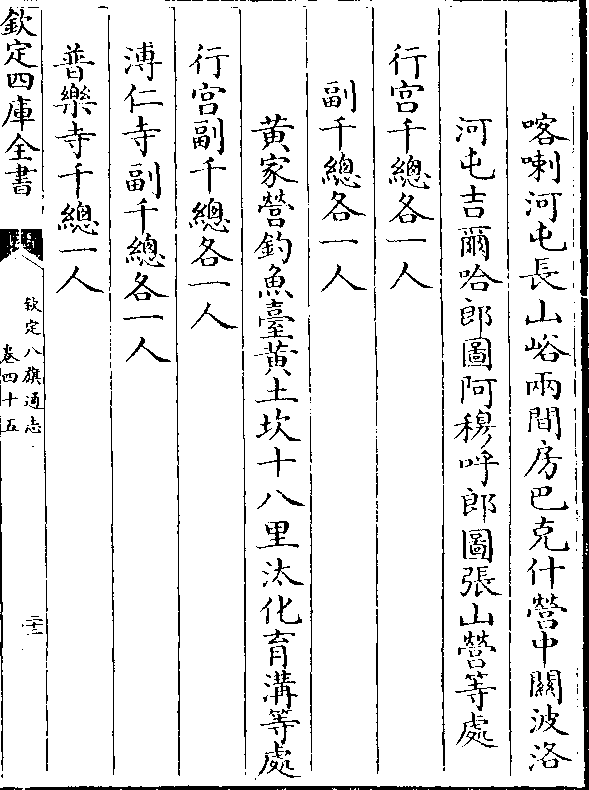 喀喇河屯長山峪兩間房巴克什營中關波洛
河屯吉爾哈郎圖阿穆呼郎圖張山營等處
行宫千總各一人
副千總各一人
黄家營釣魚臺黄土坎十八里汰化育溝等處
行宫副千總各一人
溥仁寺副千總各一人
普樂寺千總一人
欽定四庫全書
欽定八旗通志
卷四十五